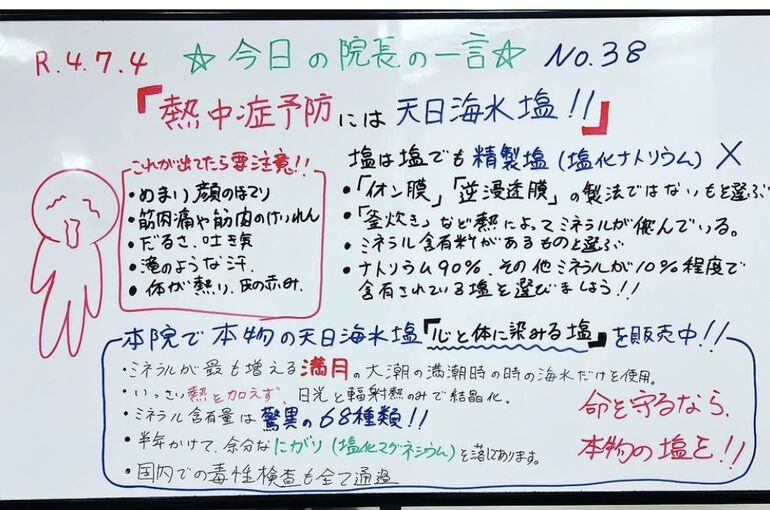 R.4.7.4 ☆今日の院長の一言☆ No.38
「熱中症予防には天日海水塩!!」
これが出てたら要注意!!
・めまい、顔のほてり
・筋肉痛や筋肉のけいれん
・だるさ、吐き気
・滝のような汗、
・体が熱い、皮の赤み、
塩は塩でも精製塩(塩化ナトリウム)×
・「イオン膜」「逆浸透膜」の製法ではないものを選ぶ
・「釜炊き」など熱によってミネラルが飛んでいる。
・ミネラル含有料があるものを選ぶ
・ナトリウム90%、その他ミネラルが10%程度で
含有されている塩を選びましょう!!
本院で本物の天日海水塩「心と体に染みる塩」を販売中!!
・ミネラルが最も増える満月の大潮の満潮時の時の海水だけを使用。
・いっさい熱を加えず、日光と輻射熱のみで結晶化。
・ミネラル含有量は驚異の68種類!!
・半年かけて、余分なにがり(塩化マグネシウム)を落してあります。
・国内での毒性検査も全て通過
命を守るなら、
本物の塩を!!